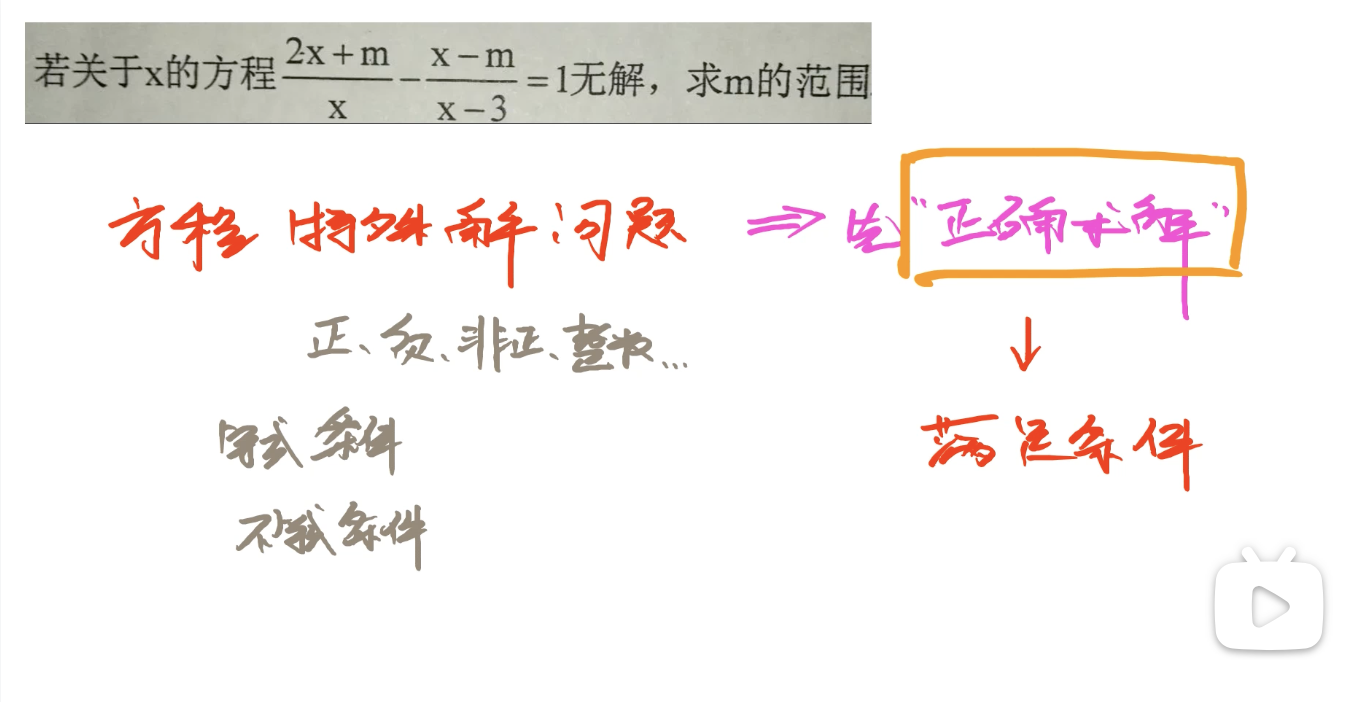 若关于x的方程\frac{2x+m}{x}-\frac{x-m}{x-3}=1无解，求m的范围
方程 特殊解问题 ⇒ 先“正确求解”
正、负、非正、整数...
↓
等式条件 满足条件
不等式条件